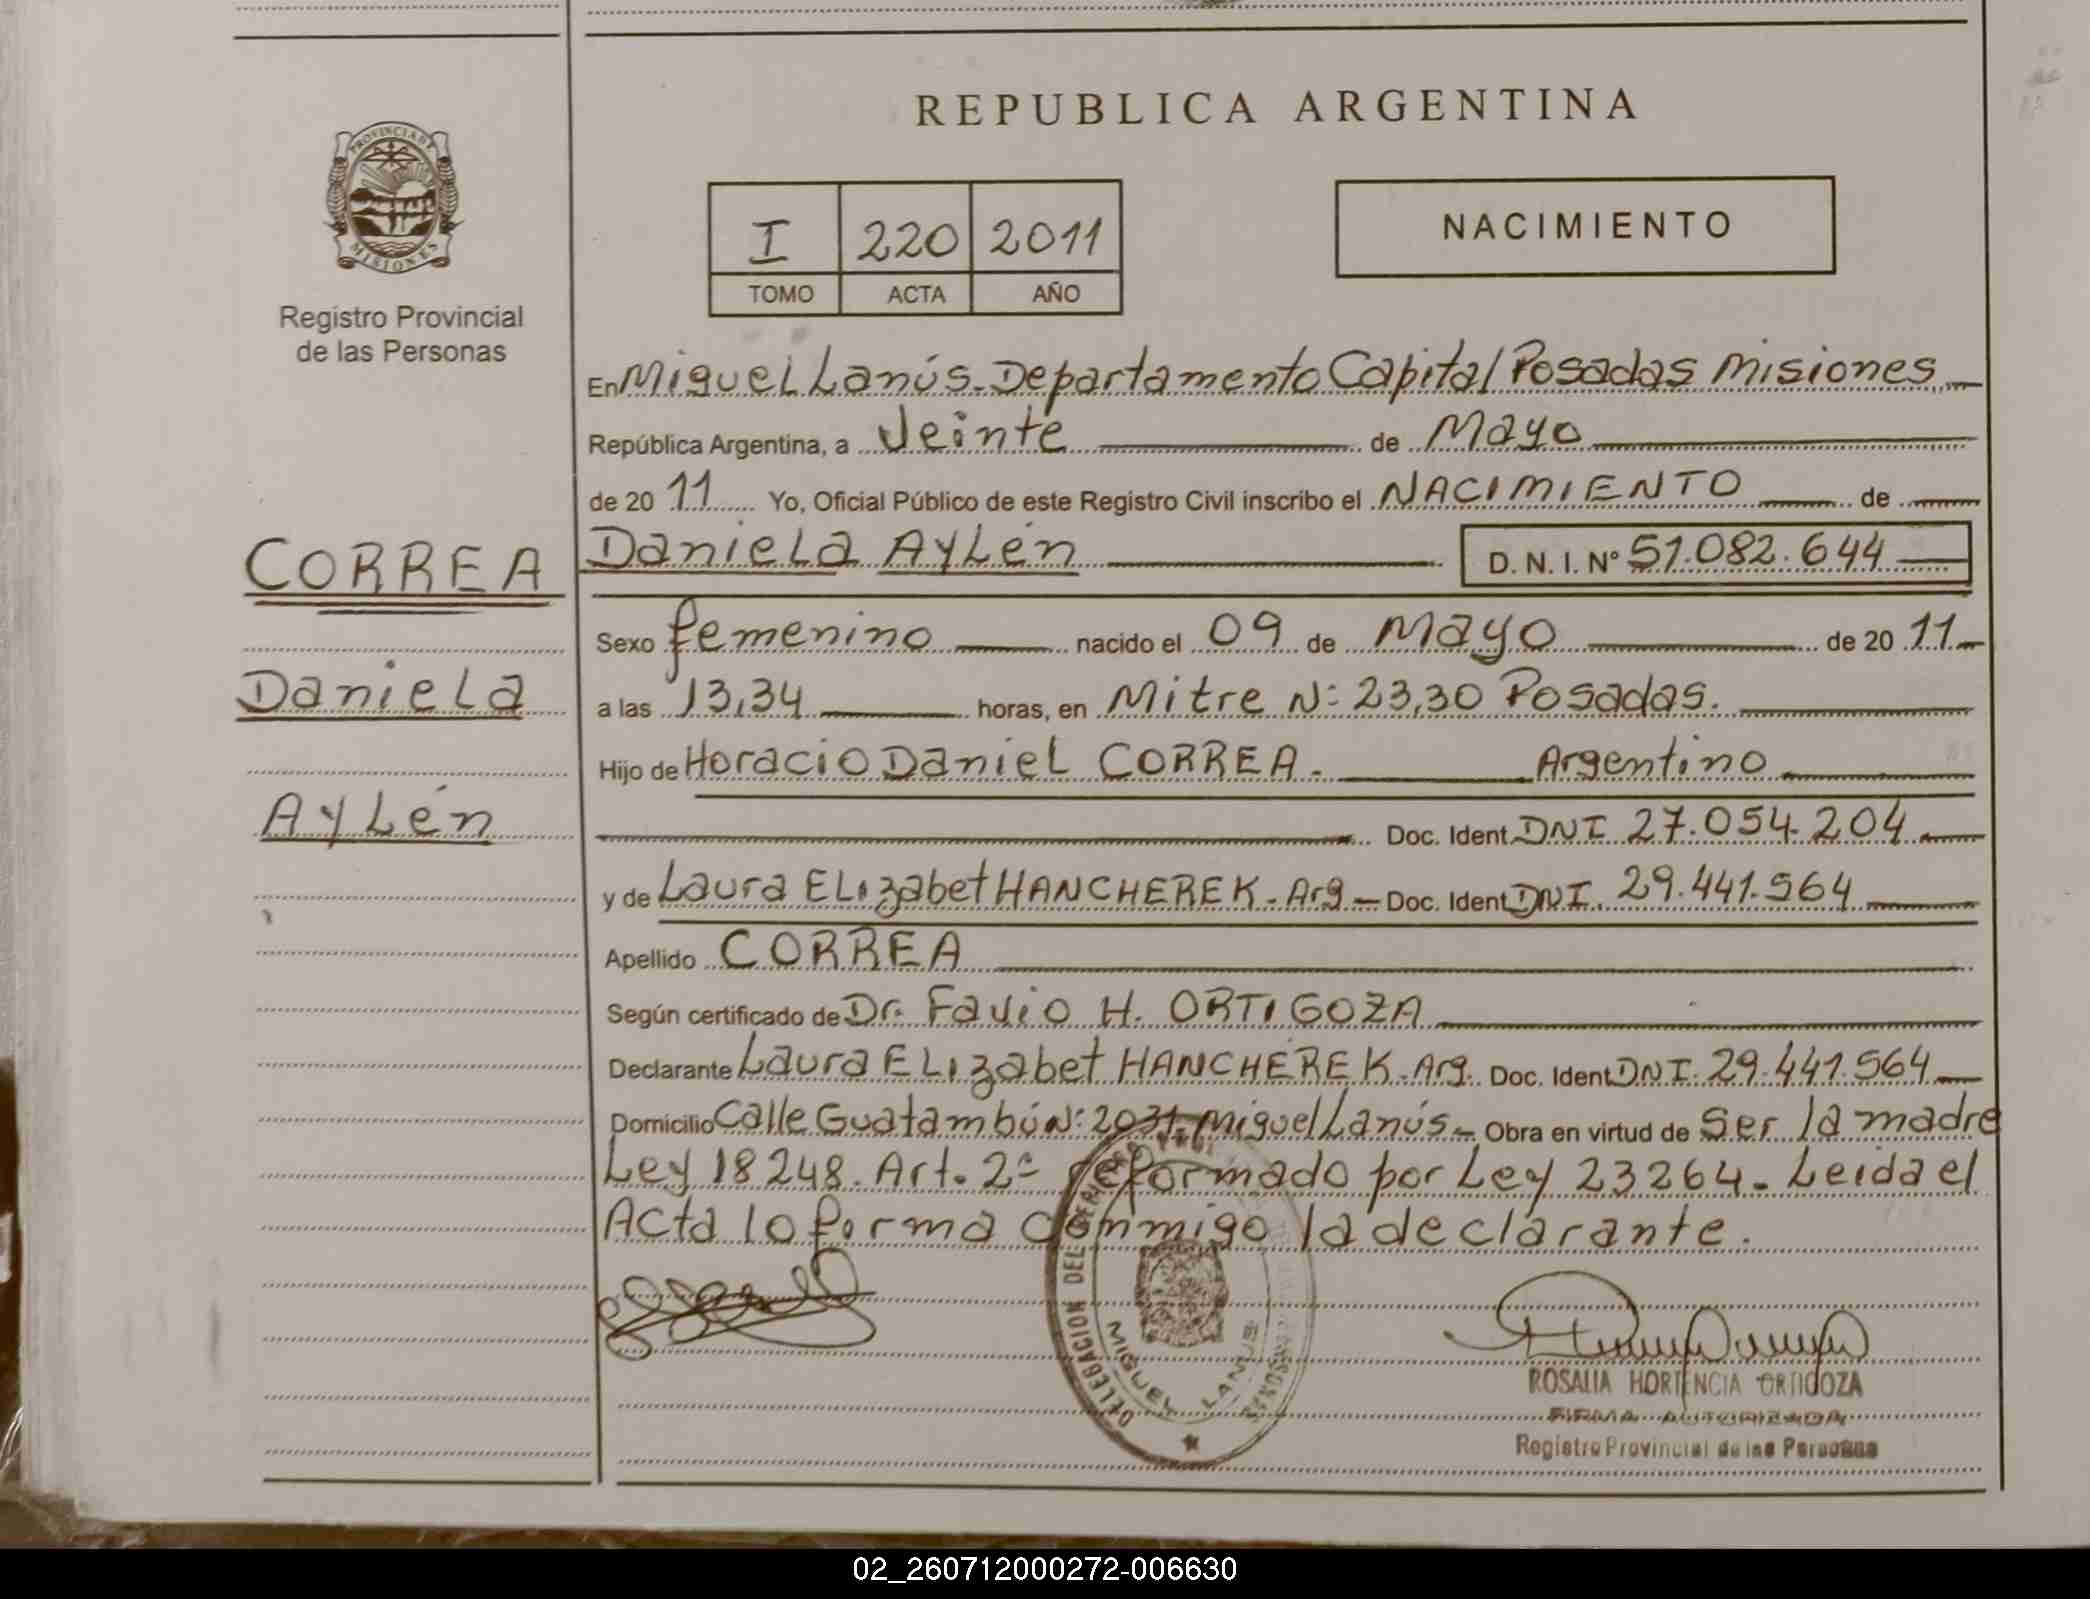 REPUBLICA ARGENTINA
PROVINCIA DE
MISIONES
Registro Provincial
de las Personas
I 220 2011
TOMO ACTA AÑO
NACIMIENTO
En Miguel Lanús. Departamento Capital Posadas Misiones
República Argentina, a Veinte de Mayo
de 20 11 Yo, Oficial Público de este Registro Civil inscribo el NACIMIENTO de
CORREA
Daniela
Aylén
Daniela Aylén D. N. I. N° 51.082.644
Sexo femenino nacido el 09 de Mayo de 20 11
a las 13,34 horas, en Mitre N: 23,30 Posadas.
Hijo de Horacio Daniel CORREA. Argentino
Doc. Ident. DNI 27.054.204
y de Laura Elizabet HANCHEREK. Arg - Doc. Ident. DNI. 29.441.564
Apellido CORREA
Según certificado de Dr. Favio H. ORTIGOZA
Declarante Laura Elizabet HANCHEREK. Arg. Doc. Ident. DNI. 29.441.564
Domicilio Calle Guatambú N: 2031. Miguel Lanús. Obra en virtud de Ser la madre
Ley 18248. Art. 2º reformado por Ley 23264. Leida el
Acta lo forma conmigo la declarante.
DELEGACION DEL
MIGUEL LANUS
ROSALIA HORTENCIA ORTIGOZA
FIRMA AUTORIZADA
Registro Provincial de las Personas
02_260712000272-006630